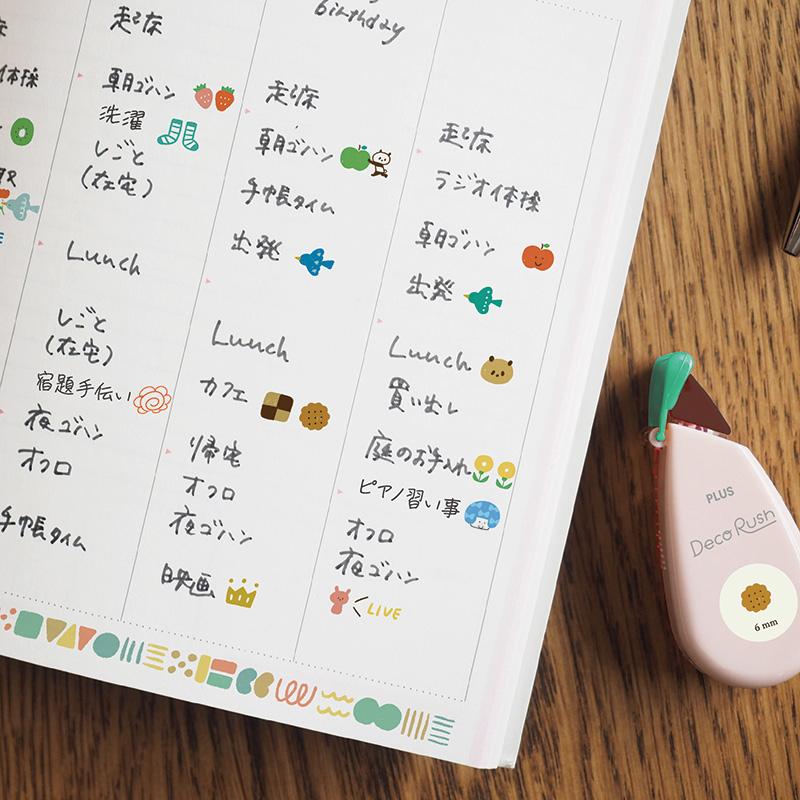 体操
起床
朝ゴハン
洗濯
しごと
(在宅)
Lunch
しごと
(在宅)
宿題手伝い
夜ゴハン
オフロ
手帳タイム
birthday
起床
朝ゴハン
手帳タイム
出発
Lunch
カフェ
帰宅
オフロ
夜ゴハン
映画
起床
ラジオ体操
朝ゴハン
出発
Lunch
買い出し
庭のお手入れ
ピアノ習い事
オフロ
夜ゴハン
LIVE
PLUS
Deco Rush
6 mm